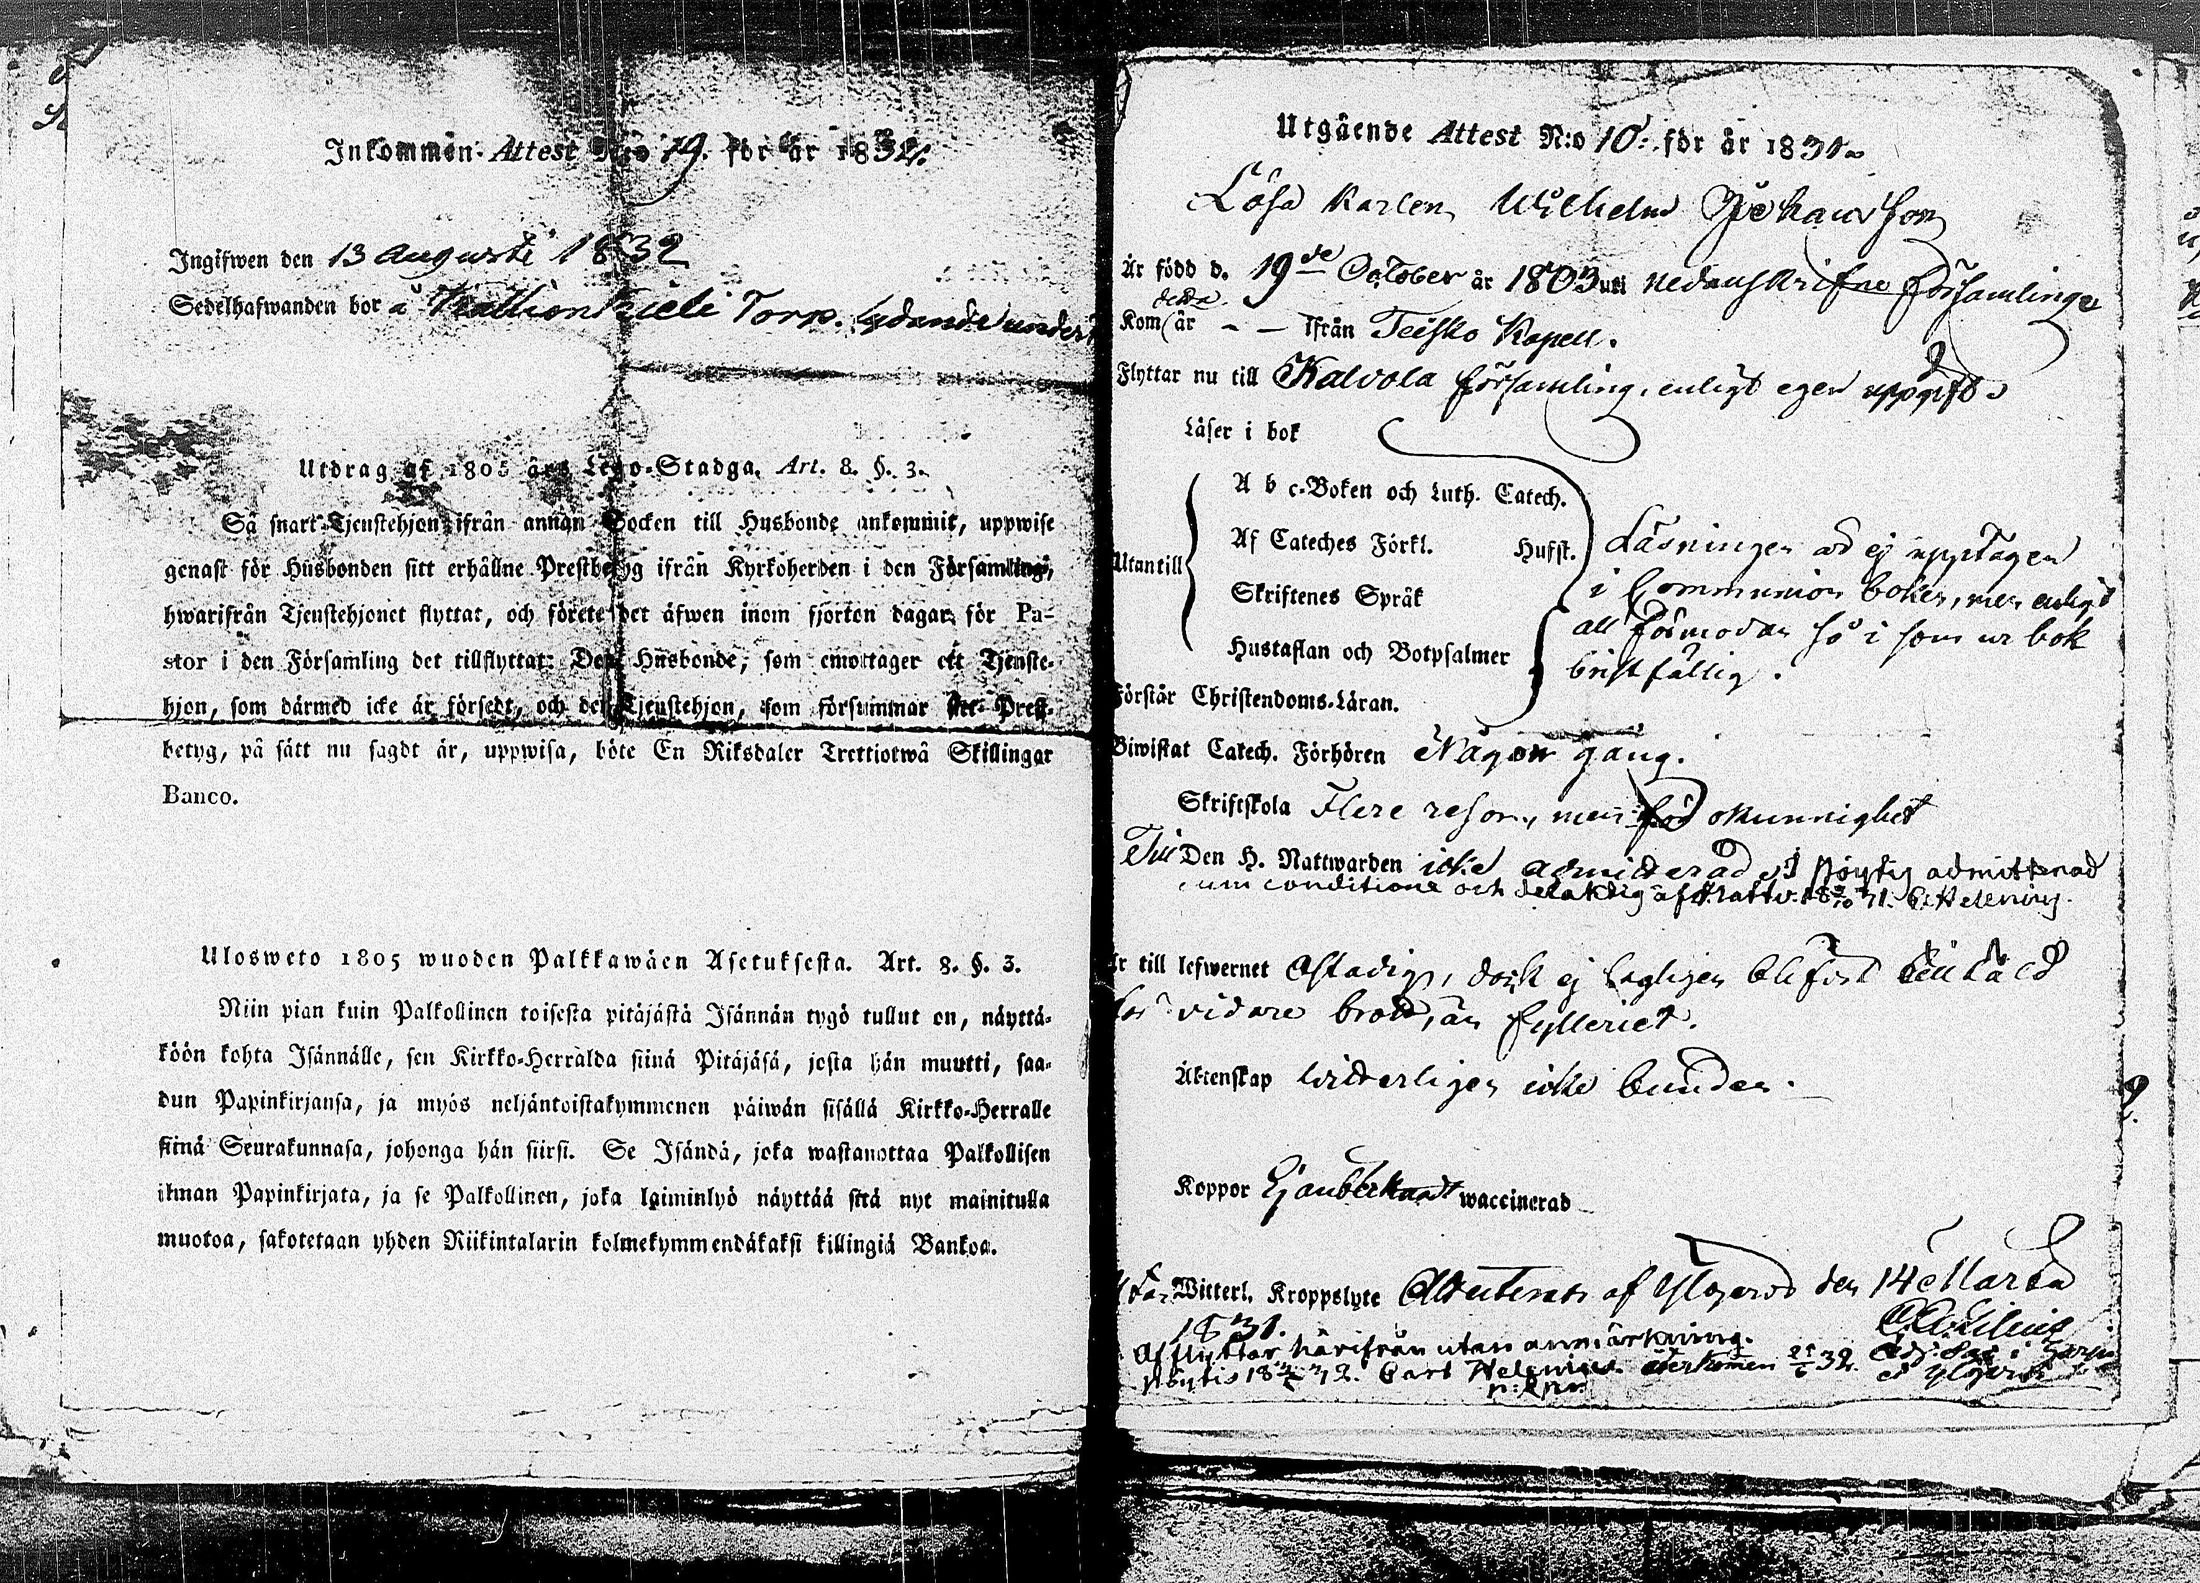 Inkommen Attest N:o 19. för år 1832.
Ingifwen den 13 Augusti 1832
Sedelhafwanden bor å Kallionkieli Torp. lydande under
Utdrag af 1805 års Lego-Stadga. Art. 8. §. 3.
Så snart Tjenstehjon ifrån annan Socken till Husbonde ankommit, uppwise
genast för Husbonden sitt erhållne Prestbetyg ifrån Kyrkoherden i den Församling,
hwarifrån Tjenstehjonet flyttat, och förete det äfwen inom fjorton dagar för Pa-
stor i den Församling det tillflyttat: Den Husbonde, som emottager ett Tjenste-
hjon, som därmed icke är försedt, och det Tjenstehjon, som försummar sitt Prest-
betyg, på sätt nu sagdt är, uppwisa, böte En Riksdaler Trettiotwå Skillingar
Banco.
Ulosweto 1805 wuoden Palkkawäen Asetuksesta. Art. 8. §. 3.
Niin pian kuin Palkollinen toisesta pitäjästä Isännän tygö tullut on, näyttä-
köön kohta Isännälle, sen Kirkko-Herralda siinä Pitäjäsä, josta hän muutti, saa-
dun Papinkirjansa, ja myös neljäntoistakymmenen päiwän sisällä Kirkko-Herralle
siinä Seurakunnasa, johonga hän siirsi. Se Isändä, joka wastanottaa Palkollisen
ilman Papinkirjata, ja se Palkollinen, joka laiminlyö näyttää sitä nyt mainitulla
muotoa, sakotetaan yhden Riikintalarin kolmekymmendäkaksi killingiä Bankoa.
Utgående Attest N:o 10. för år 1831.
Lösa Karlen Wilhelm Johansson
Är född d. 19de October år 1803 uti nedanskrifne församlinge
Kom detta år - - ifrån Teisko Kapell.
Flyttar nu till Kalvola församling, enligt egen uppgift.
Läser i bok
A b c-Boken och Luth. Catech.
Af Cateches Förkl. Hufst.
Utantill
Skriftenes Språk
Hustaflan och Botpsalmer
Förstår Christendoms-Läran.
Läsningen ej upptagen
i Communion boken, men enligt
all förmodan så i som ur bok
bristfällig.
Biwistat Catech. Förhören Någon gång.
Skriftskola Flere resor, men för okunnighet
Till Den H. Nattwarden icke admitterad. I Pöytis admitterad
cum conditione och delaktig af H. Nattv. C. Helenius.
Är till lefwernet Ostadig, dock ej lagligen blifvit tilltald
för vidare brott, än fylleriet.
Äktenskap witterligen icke bunden.
Koppor waccinerad
Witterl. Kroppslyte Attesteras af Ylöjerwi den 14 Martii
1831.
Afflyttar härifrån utan anmärkning.
Pöytis 32. Carl Helenius Återkommen 32.